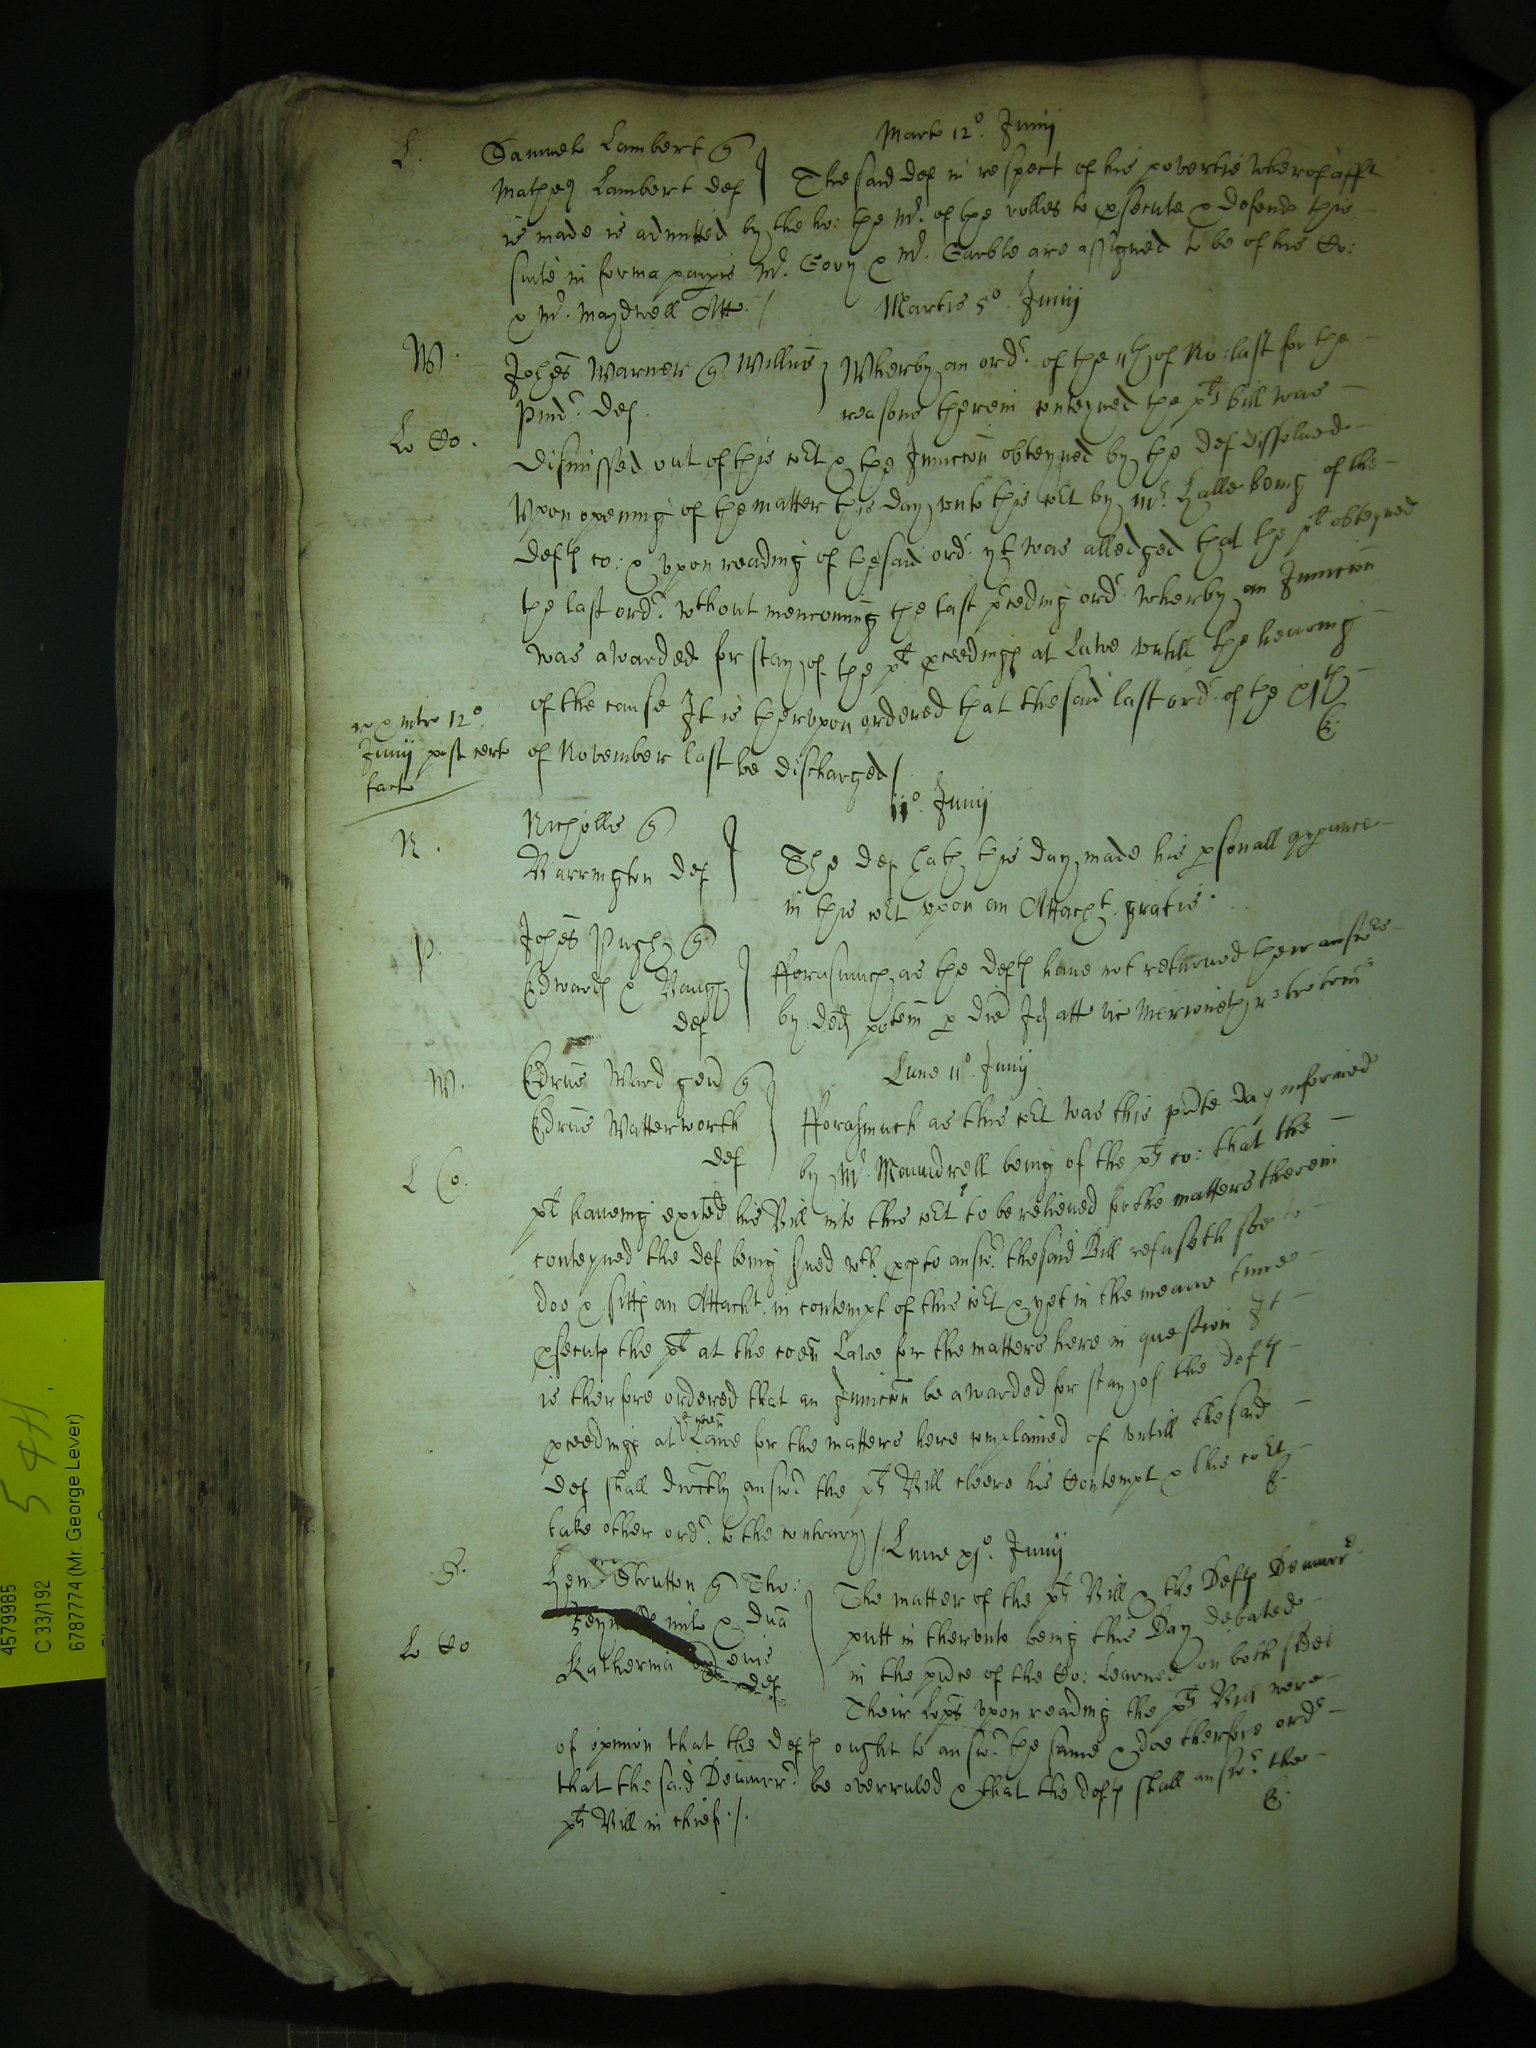 Marte 12°. Junij
L. Samuel Lambert q
Matheu Lambert def } The said def in respect of his povertie wherof afft
is made is admitted by the ho: the Mr. of the rolles to psecute & defend this
suite in forma pauperis Mr. & Mr. are assigned to be of his Co:
& Mr. Maydwell Att. /
Martis 5° Junij
W. Johes Warner q Willus } Wherby an ordr. of the 11th of No: last for the
def reasons therein conteyned the plts bill was
Lo Co. dismissed out of this cort & the Iniuccon obteyned by the def dissolued
Vpon opening of the matter this day vnto this cort by Mr. Halle being of the
defts co: & vpon reading of the said ordr. yt was alledged that the plt obteyned
the last ordr. wthout mencoining the last pceding ordr. wherby an Iniuccon
was awarded for stay of the plts pceedings at Lawe vntill the hearing
of the cause It is thervpon ordered that the said last ordr. of the xjth
of November last be discharged /
12°.
Junij post
facto
11°. Junij
N. Nicholls q
Barrington def } The def hath this day made his psonall apparance
in this cort vpon an Attacht. gratis.
P. Johes Pugh q
Edwards & Vaughan
def } fforasmuch as the defts haue not returned their answers
by ded potem p Att vic Merioneth
Lune 11° Junij
W. Edrus Ward gen q
Edrus Watterworth
def } fforasmuch as this cort was this pnte day informed
L Co. by Mr. Maundrell being of the plts co: that the
plt haueing exited his Bill into this cort to be relieued for the matters therein
conteyned the def being serued wth pces to answr. the said Bill refuseth soe to
doe & sitts an Attacht. in contempt of this cort & yet in the meane time
psecuts the plt at the coen Lawe for the matters here in question It
is therfore ordered that an Iniuccon be awarded for stay of the defts
pceedings at ye coen Lawe for the matters here complained of vntill the said
def shall directly answr. the plts Bill cleere his Contempt & this cort
take other ordr. to the contrary /
Lune xj°. Junij
S. Henr Strutton q Tho:
mil & Dna
Katherina
def } The matter of the plts Bill & the Defts Demurr
Lo Co putt in thervnto being this Day debated
in the pnce of the Co: Learned on both sides
Their Lops vpon reading the plts Bill were
of opinion that the defts ought to answr. the same & doe therfore ordr
that the said Demurr. be overruled & that the defts shall answr. the
plts Bill in chief. /.
4579985
C 33/192
6787774 (Mr. George Lever)